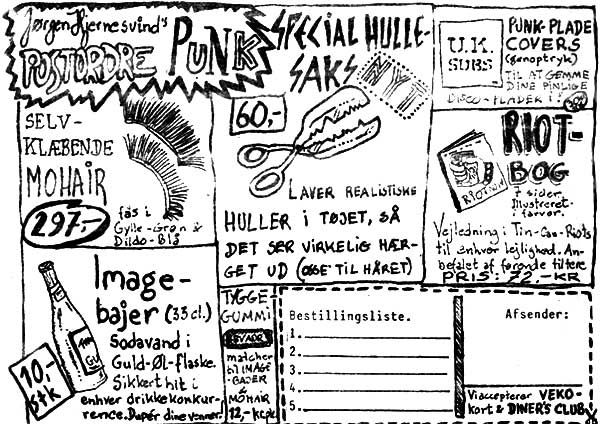 Jørgen Hjernesvind's
POSTORDRE PUNK
SPECIAL HULLE-
SAKS
NYT
60,-
LAVER REALISTISKE
HULLER i TØJET, SÅ
DET SER VIRKELIG HÆR-
GET UD (OGSE TIL HÅRET)
U.K.
SUBS
PUNK-PLADE
COVERS
(genoptryk)
TIL AT GEMME
DINE PINLIGE
DISCO-PLADER I!
SELV-
KLÆBENDE
MOHAIR
297,-
fås i
Gylle-Grøn &
Dildo-Blå
RIOT-
BOG
7 sider
illustreret
i farver.
Vejledning i Tin-Can-Riots
til enhver lejlighed. An-
befalet af førende filtere
PRIS: 72,- KR
Image-
bajer (33 cl.)
Sodavand i
Guld-Øl-flaske.
Sikkert hit i
enhver drikkekonkur-
rence. Dupér dine venner.
10,-
stk
TYGGE-
GUMMI
matcher
til IMAGE-
BAJER
&
MOHAIR
12,- kr.pk.
Bestillingsliste.
1.
2.
3.
4.
5.
Afsender:
Vi accepterer VEKO-
kort & DINER'S CLUB